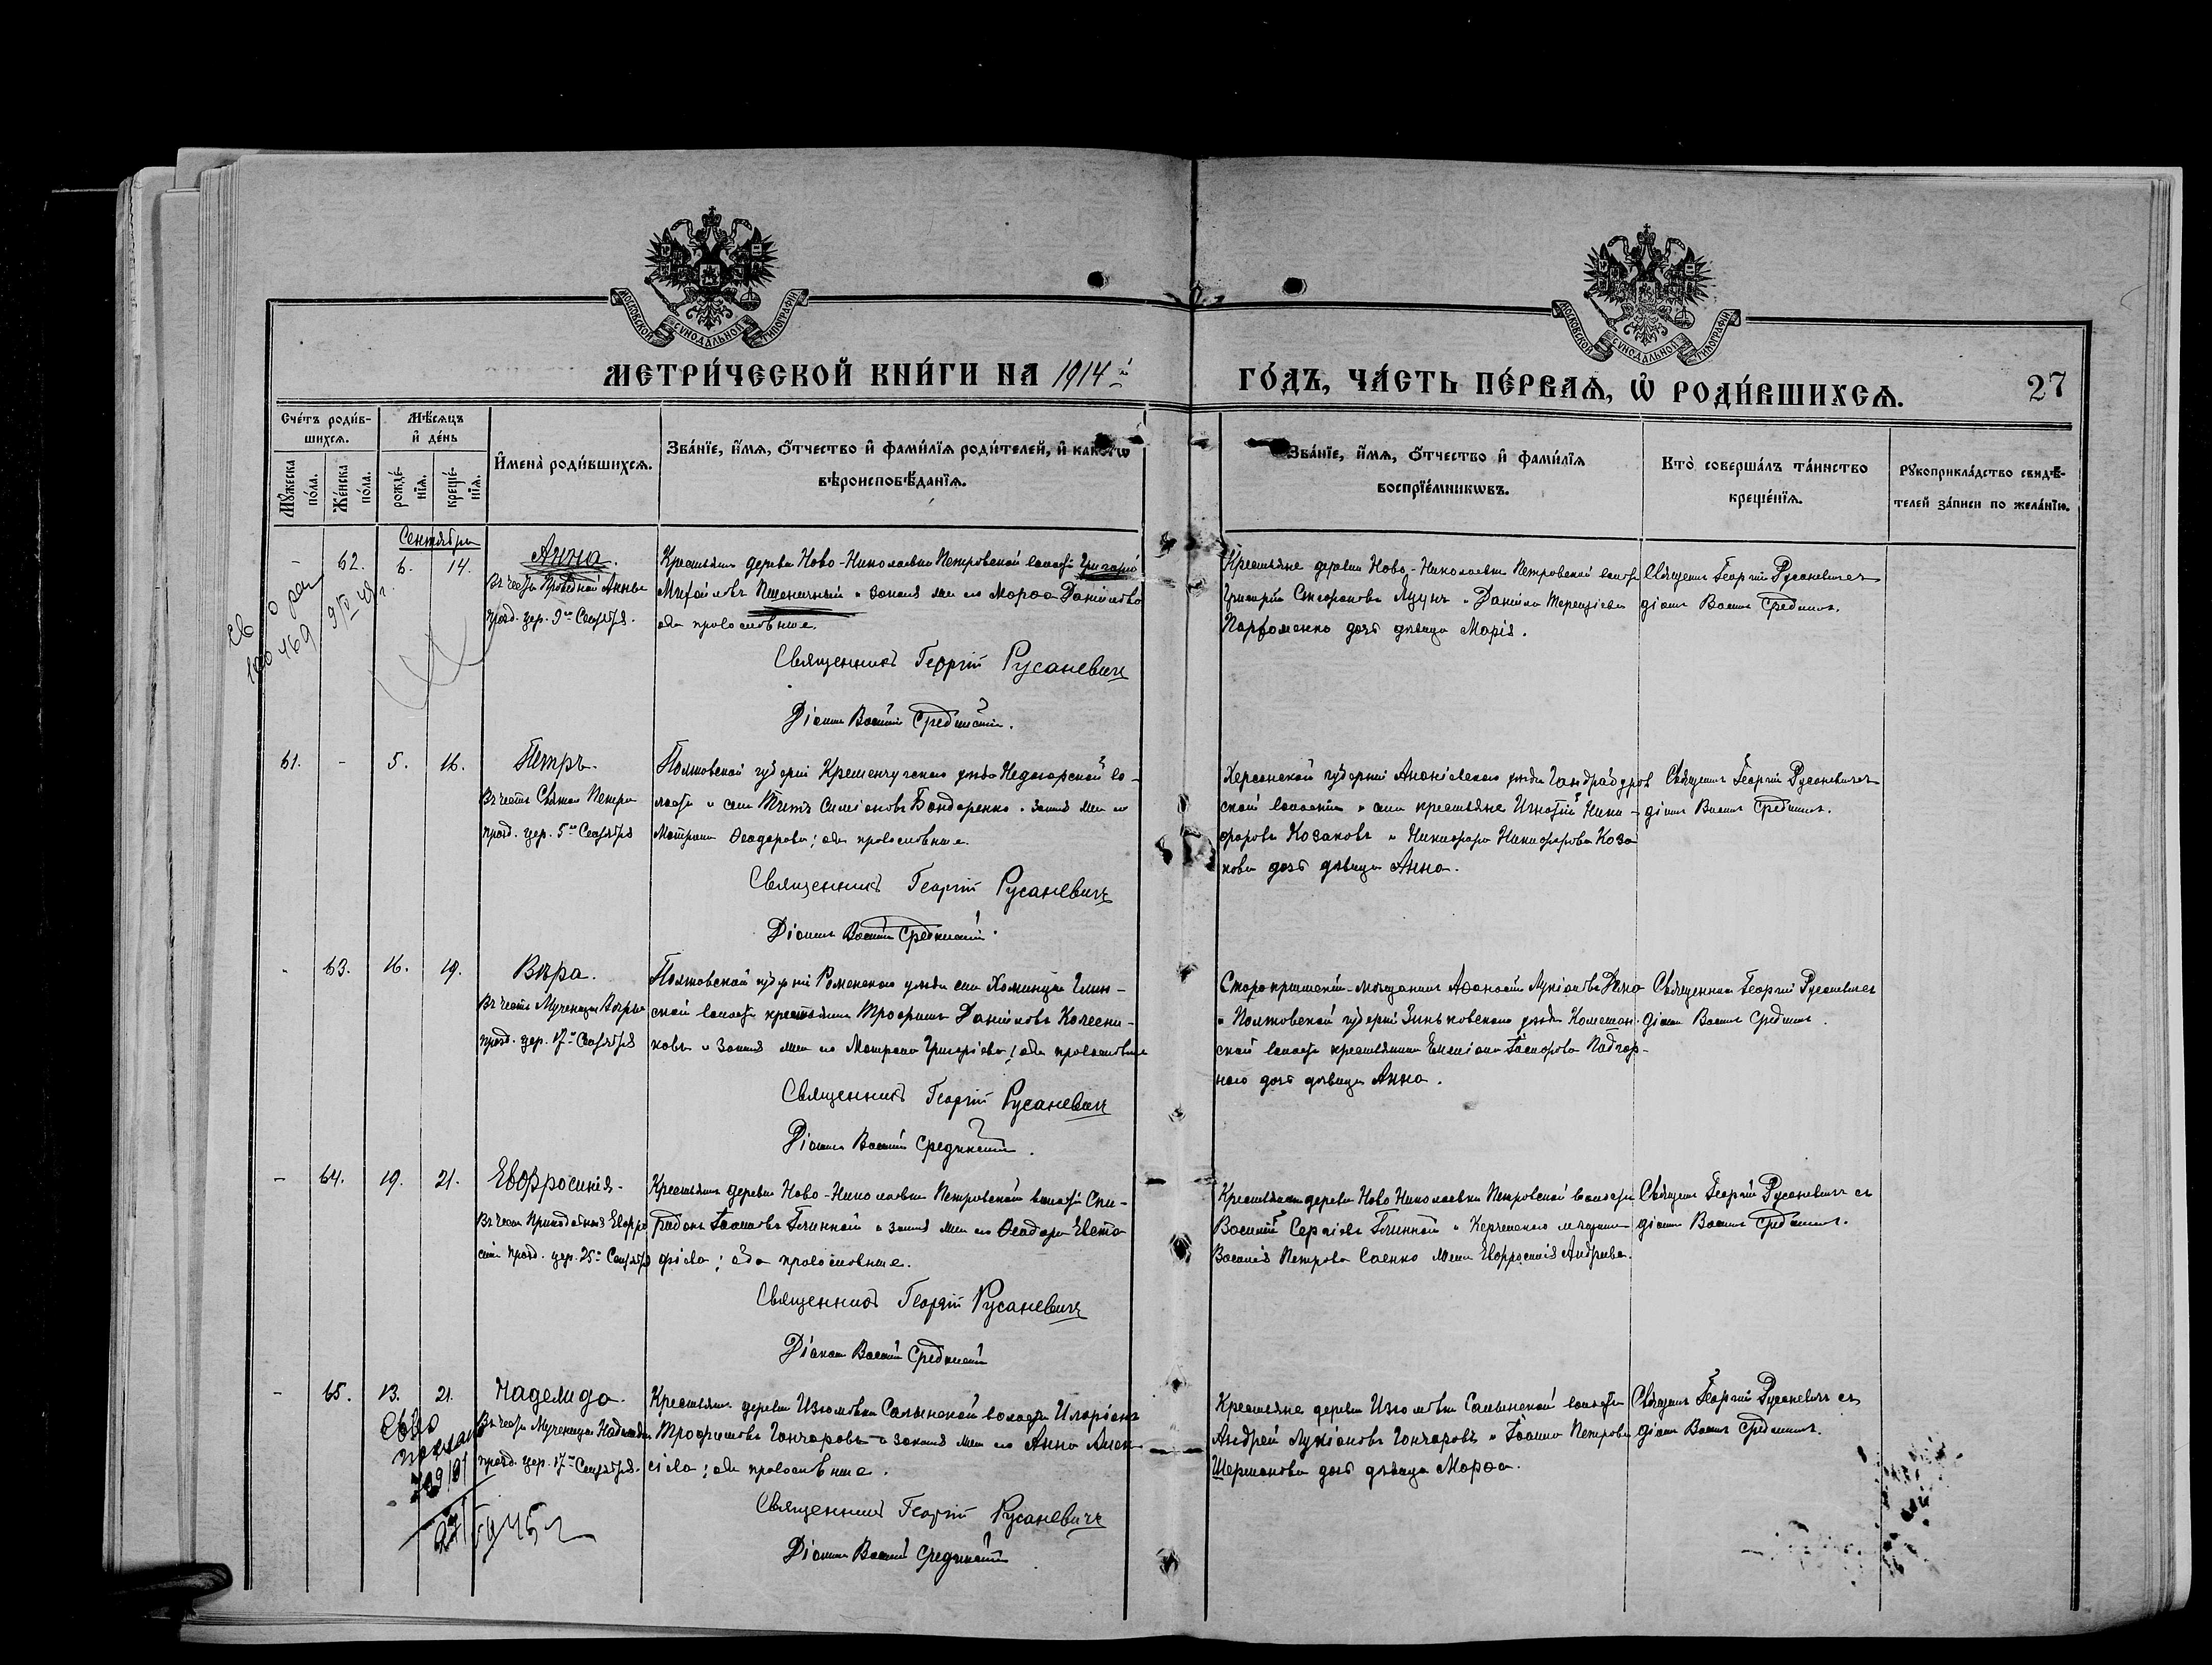 МОСКОВСКОЙ СУНОДАЛЬНОЙ ТИПОГРАФІИ
МОСКОВСКОЙ СУНОДАЛЬНОЙ ТИПОГРАФІИ
МЕТРИ́ЧЕСКОЙ КНИ́ГИ НА 1914 й
ГО́ДЪ, ЧА́СТЬ ПЕ́РВАѦ, Ѡ РОДИ́ВШИХСѦ.
27
Сче́тъ роди́в-
шихсѧ.
Мѣ́сѧцъ
и҆ де́нь
Мꙋ́жеска
по́ла.
Же́нска
по́ла.
рожде́-
нїѧ.
креще́-
нїѧ.
И҆мена̀ роди́вшихсѧ.
Зва́нїе, и҆́мѧ, ѻ҆́тчество и҆ фами́лїѧ роди́телей, и҆ како́гѡ
вѣроисповѣ́данїѧ.
Зва́нїе, и҆́мѧ, ѻ҆́тчество и҆ фами́лїѧ
воспрїе́мникѡвъ.
Кто̀ соверша́лъ та́инство
креще́нїѧ.
Рꙋкоприкла́дство свидѣ́-
телей за́писи по жела́нїю.
Сентября
- 62. 6. 14. Анна.
Въ честь Праведной Анны
празд. цер. 9го Сентября.
Крестьянинъ деревни Ново-Николаевки Петровской волости Григорій
Михайловъ Пшеничный и законная жена его Марѳа Данилова
оба православные.
Священникъ Георгій Русаневичъ
Діаконъ Василій Срединскій.
Крестьяне деревни Ново-Николаевки Петровской волости
Григорій Стефановъ Луцъ и Даніила Терентіева
Парфоменко дочь дѣвица Марія.
Священникъ Георгій Русаневичъ съ
діакон Васил Средински.
61. - 5. 16. Петръ.
Въ честь Святого Петра
празд. цер. 5го Сентября
Полтавской губерніи Кременчугскаго уѣзда во-
лости и села Титъ Симіоновъ Бондаренко и законная жена его
Матрона Ѳеодорова; оба православные.
Священникъ Георгій Русаневичъ
Діаконъ Василій Срединскій.
Херсонской губерніи Ананіевскаго уѣзда
ской волости и села крестьяне Игнатій Ники-
форовъ Козаковъ и Никифора Никифорова Коза
кова дочь дѣвица Анна.
Священникъ Георгій Русаневичъ съ
діакон Васил Средински.
- 63. 16. 19. Вѣра.
Въ честь Мученицы Вѣры
празд. цер. 17го Сентября
Полтавской губерніи Роменскаго уѣзда села Хоминцы Глин-
ской волости крестьянинъ Трофимъ Даниловъ Колесни-
ковъ и законная жена его Матрона Григоріева; оба православные
Священникъ Георгій Русаневичъ
Діаконъ Василій Срединскій.
Аѳанасій Лукіановъ
и Полтавской губерніи Зиньковскаго уѣзда
ской волости крестьянина Емеліана
наго дочь дѣвица Анна.
Священникъ Георгій Русаневичъ съ
діакон Васил Средински.
- 64. 19. 21. Евфросинія.
Въ честь Преподобной Евфро
синіи празд. цер. 25го Сентября
Крестьянинъ деревни Ново-Николаевки Петровской волости Спи-
ридонъ Іоанновъ Глинной и законная жена его Ѳеодора Евста
фіева; оба православные.
Священникъ Георгій Русаневичъ
Діаконъ Василій Срединскій
Крестьянинъ деревни Ново Николаевки Петровской волости
Василій Сергіевъ Глинной и Керченскаго мѣщанина
Василія Петрова Саенко жена Евфросинія Андреева.
Священникъ Георгій Русаневичъ съ
діакон Васил Средински.
- 65. 13. 21. Надежда.
Въ честь Мученицы Надежды
празд. цер. 17го Сентября.
Крестьянинъ деревни Изюмовки Салынской волости Иларіонъ
Трофимовъ Гончаровъ и законная жена его Анна Алек
сіева; оба православные.
Священникъ Георгій Русаневичъ
Діаконъ Василій Срединскій
Крестьяне деревни Изюмовки Салынской волости
Андрей Лукіановъ Гончаровъ и Іоанна Петрова
Шерманова дочь дѣвица Марѳа.
Священникъ Георгій Русаневичъ съ
діакон Васил Средински.